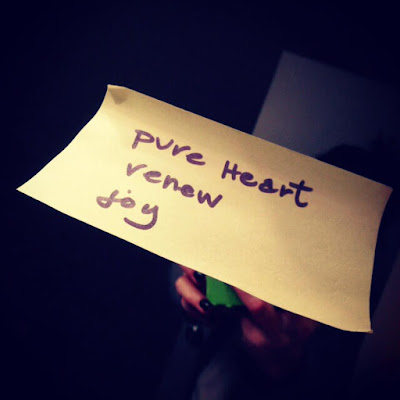 pure Heart
renew
joy